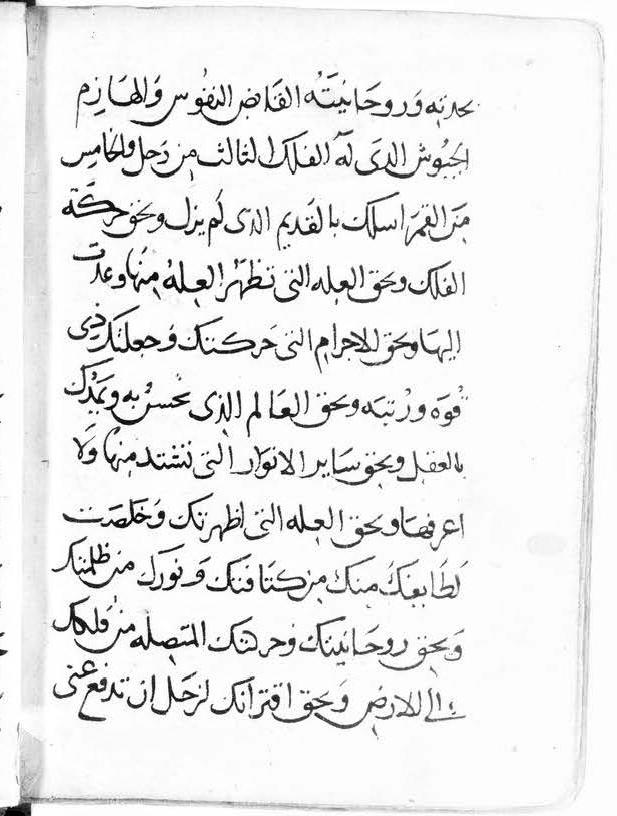 بحدته وروحانيته القابض النفوس والهازم
الجيوش الذى له الفلك الثالث من زحل والخامس
من القمر اسلك بالقديم الذى لم يزل وبحق حركة
الفلك وبحق العله التى تظهر العله منها وعدت
اليها وبحق الاجرام التى حركتك وجعلتك ذى
قوه ورتبه وبحق العالم الذى تحسن به ويمدك
بالعقل وبحق ساير الانوار التى تشتد منها ولا
اعرفها وبحق العله التى اظهرتك وخلصت
لطايفك منك من كثافتك ونورك من ظلمتك
وبحق روحانيتك وحركتك المتصله من فلكك
الى الارض وبحق اقترانك لزحل ان تدفع عنى